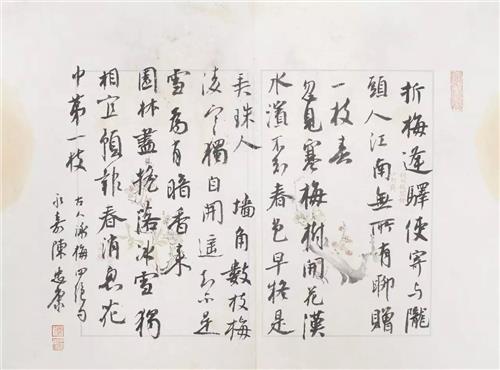 折梅逢驛使寄与隴
頭人江南無所有聊贈
一枝春
忽見寒梅樹開花漢
水濱不知春色早疑是
弄珠人 墙角數枝梅
凌寒獨自開遥知不是
雪為有暗香来
園林盡摇落冰雪獨
相宜預報春消息花
中第一枝
古人咏梅四絶句
永嘉陳忠康